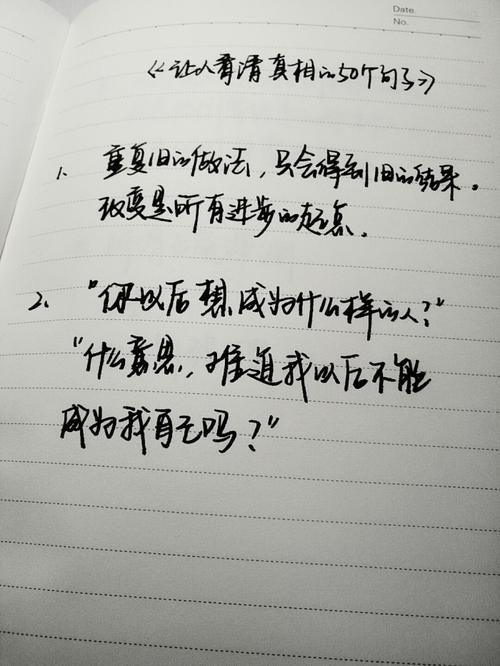 Date.
No.
《让人看清真相的50个句子》
1. 重复旧的做法，只会得到旧的结果。
改变是所有进步的起点。
2. “你以后想成为什么样的人？”
“什么意思，难道我以后不能
成为我自己吗？”